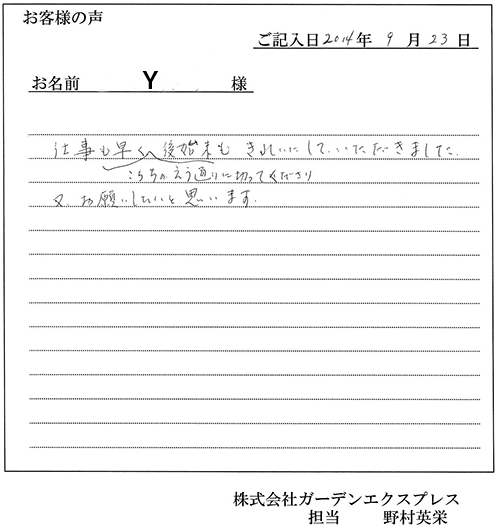 お客様の声
ご記入日2014年 9月23日
お名前 Y 様
仕事も早く、後始末も きれいにしていただきました。
こちらがいう通りに切ってくださり
又、お願いしたいと思います。
株式会社ガーデンエクスプレス
担当 野村英栄